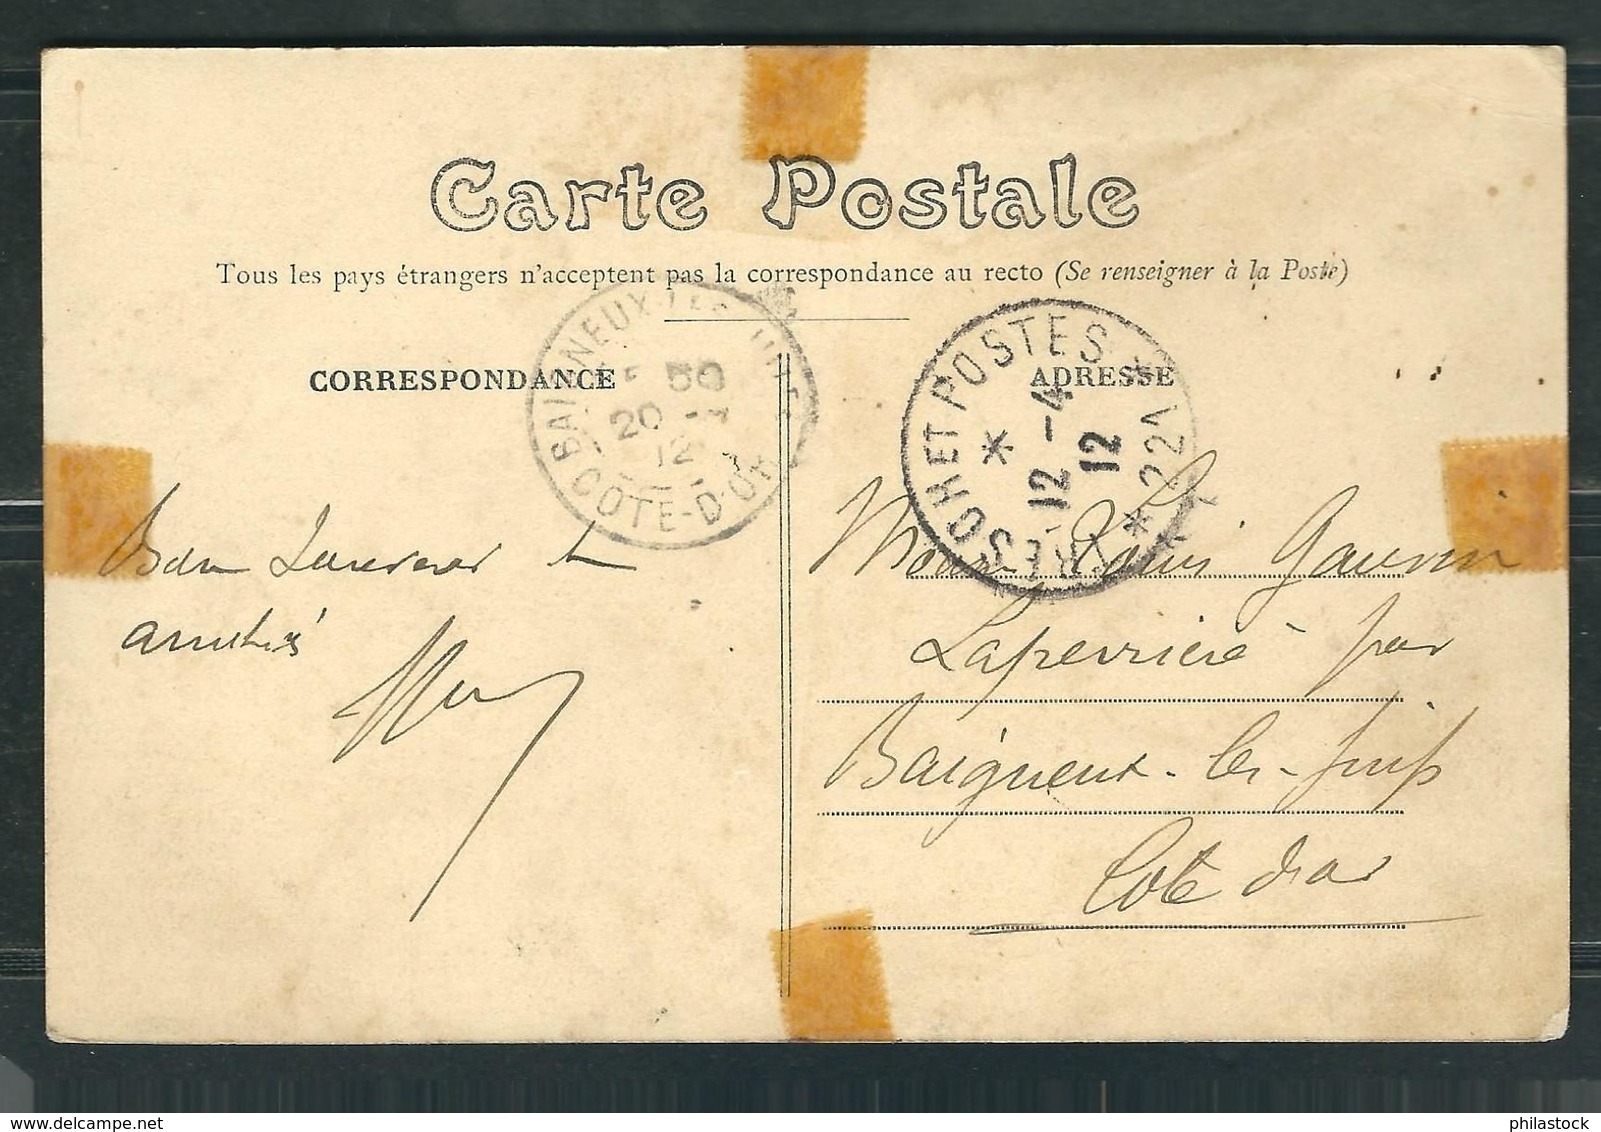 Carte Postale
Tous les pays étrangers n'acceptent pas la correspondance au recto (Se renseigner à la Poste)
CORRESPONDANCE
ADRESSE
BAIGNEUX LES JUIFS
20 -4
12
COTE-D'OR
TRESOR ET POSTES * 221 *
12 -4
12
Bon Souvenir &
amitiés
Louis Gauvin
Laperrière par
Baigneux-les-Juifs
Cote d'or
philastock